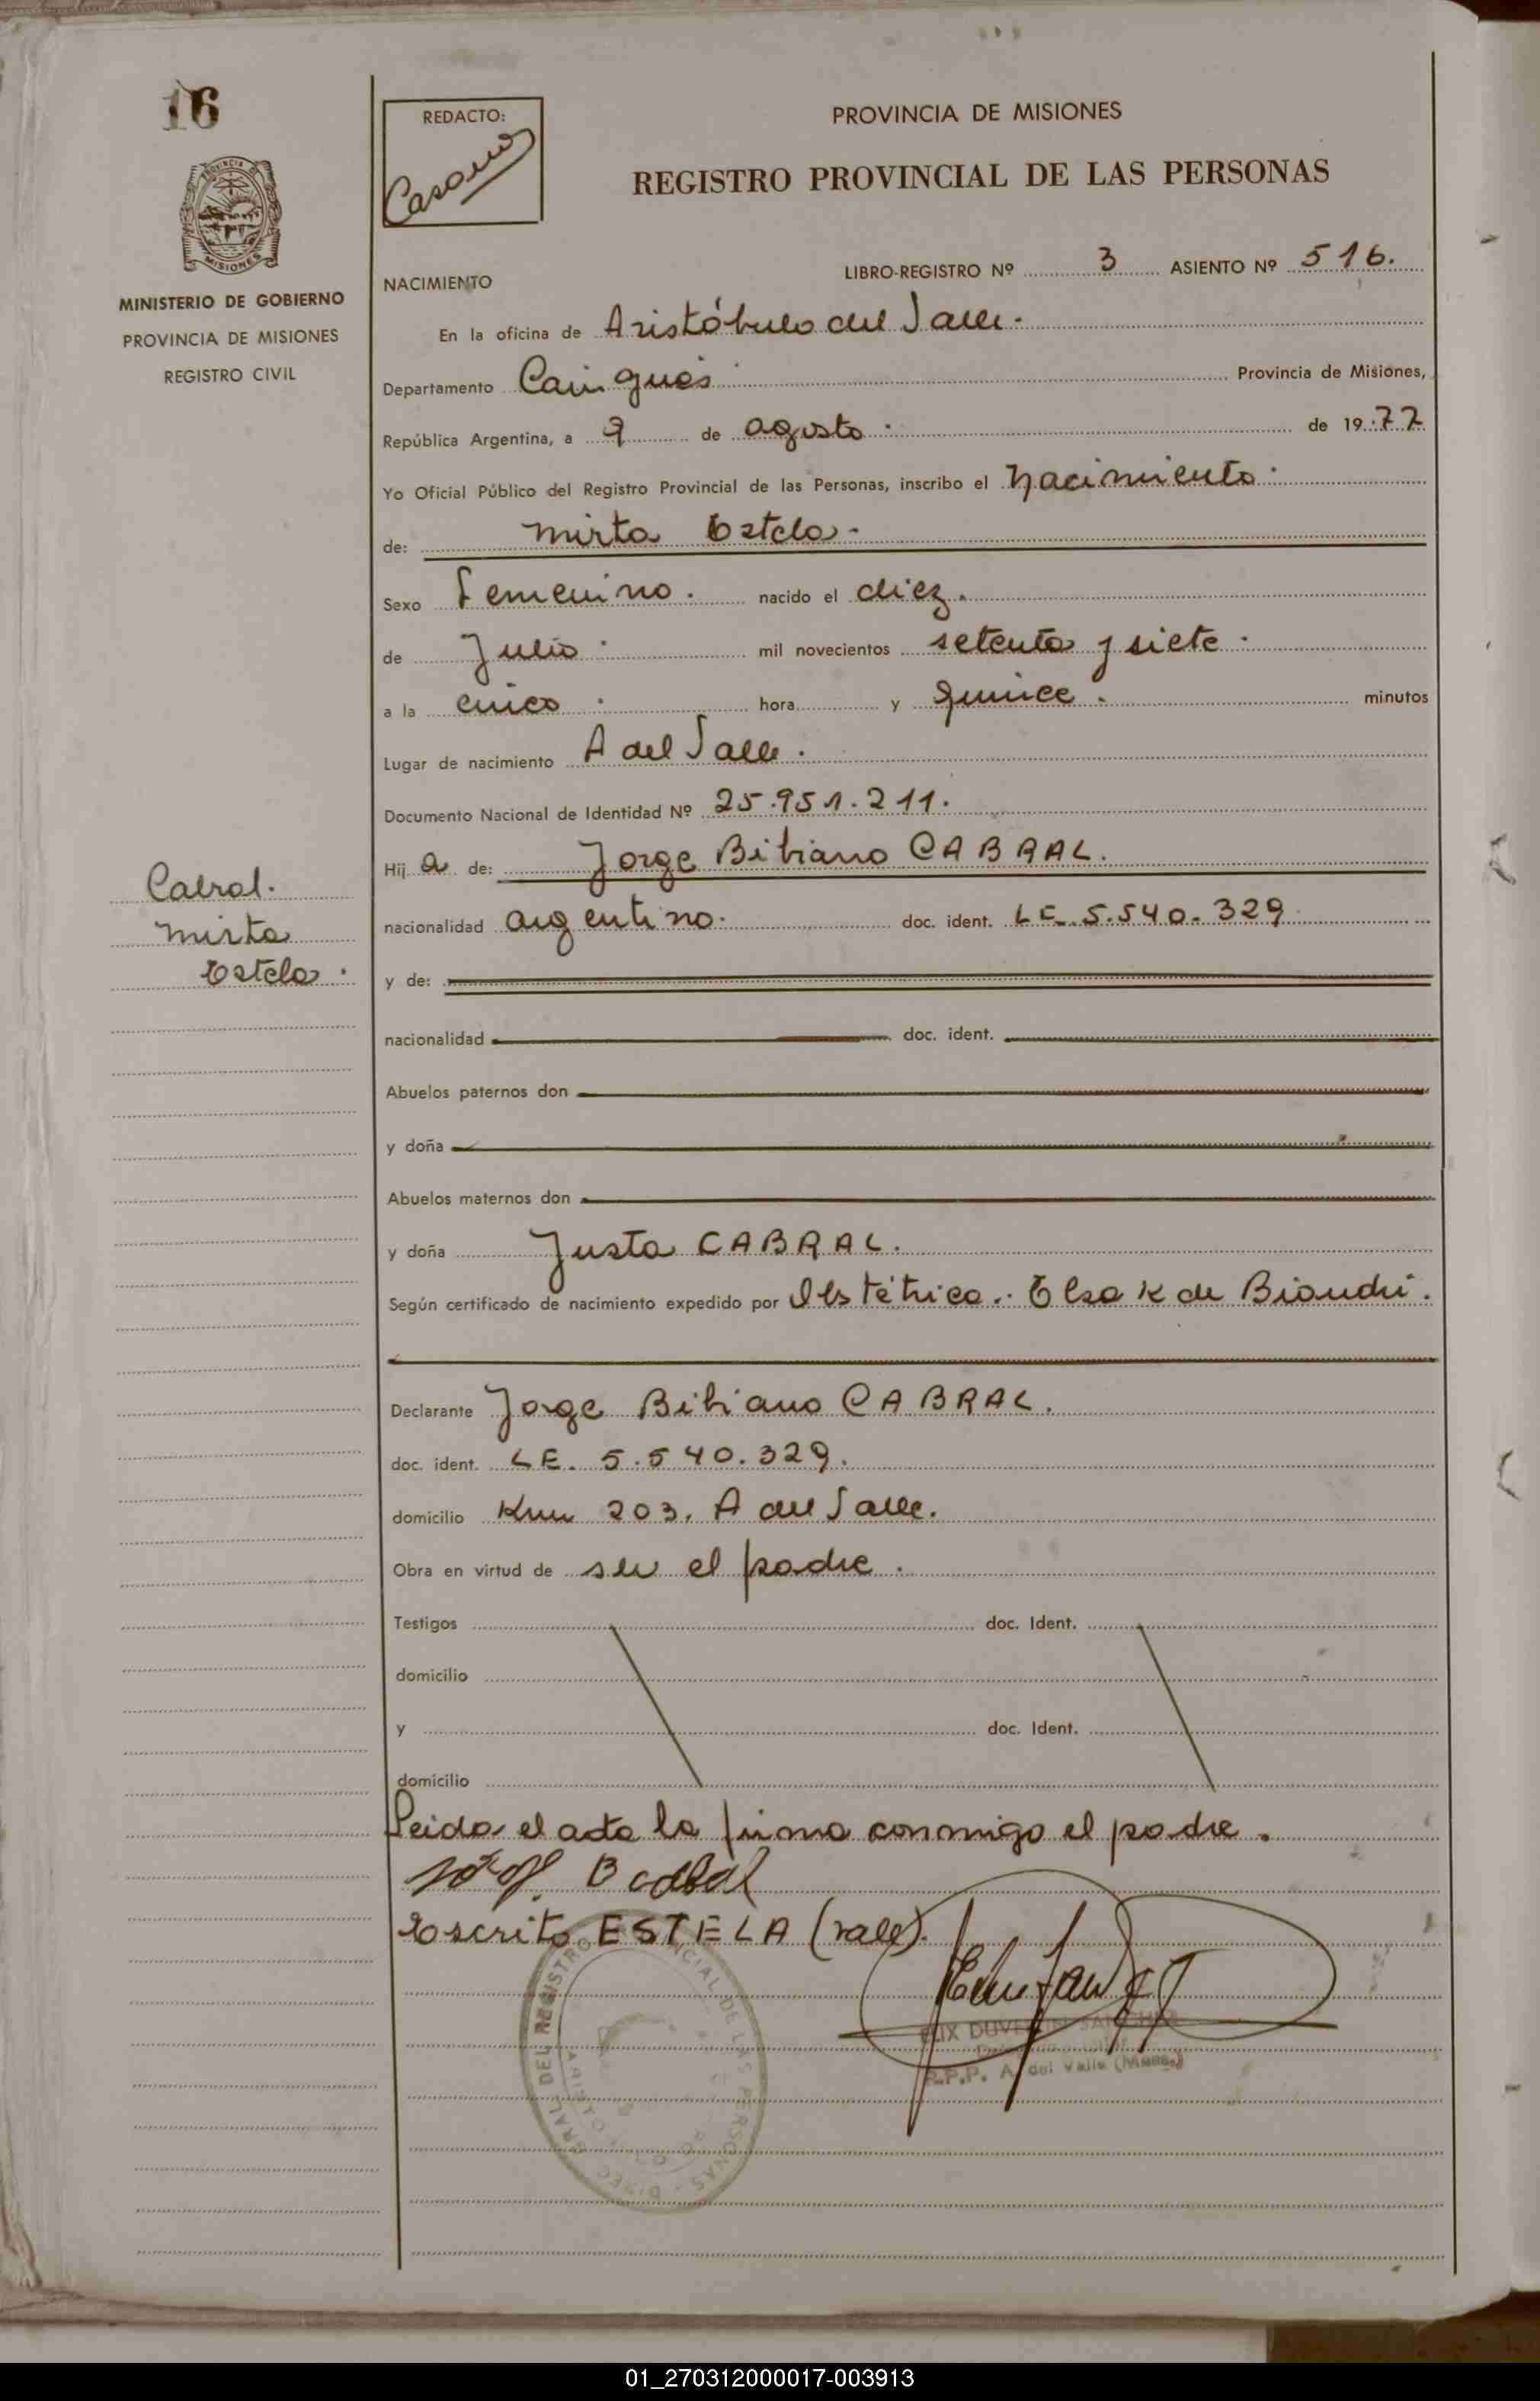 16
PROVINCIA
MISIONES
MINISTERIO DE GOBIERNO
PROVINCIA DE MISIONES
REGISTRO CIVIL
REDACTO:
PROVINCIA DE MISIONES
REGISTRO PROVINCIAL DE LAS PERSONAS
NACIMIENTO
LIBRO-REGISTRO Nº 3 ASIENTO Nº 516.
En la oficina de Aristóbulo del Valle.
Departamento Cainguás Provincia de Misiones,
República Argentina, a 9 de agosto de 1977
Yo Oficial Público del Registro Provincial de las Personas, inscribo el nacimiento
de: Mirta Estela
Sexo Femenino. nacido el diez.
de Julio mil novecientos setenta y siete
a la cinco hora y quince minutos
Lugar de nacimiento A del Valle.
Documento Nacional de Identidad Nº 25.951.211.
Hija de: Jorge Bibiano CABRAL.
nacionalidad argentino. doc. ident. LE. 5.540.329
y de:
nacionalidad doc. ident.
Abuelos paternos don
y doña
Abuelos maternos don
y doña Justa CABRAL.
Según certificado de nacimiento expedido por Obstétrica. Elsa K de
Declarante Jorge Bibiano CABRAL.
doc. ident. LE. 5.540.329.
domicilio Km 203. A del Valle.
Obra en virtud de ser el padre.
Testigos doc. Ident.
domicilio
y doc. Ident.
domicilio
Leida el acta la firma conmigo el padre.
Escrito ESTELA (vale).
R.P.P. A. del Valle (Mnes.)
Cabral.
Mirta
Estela
01_270312000017-003913